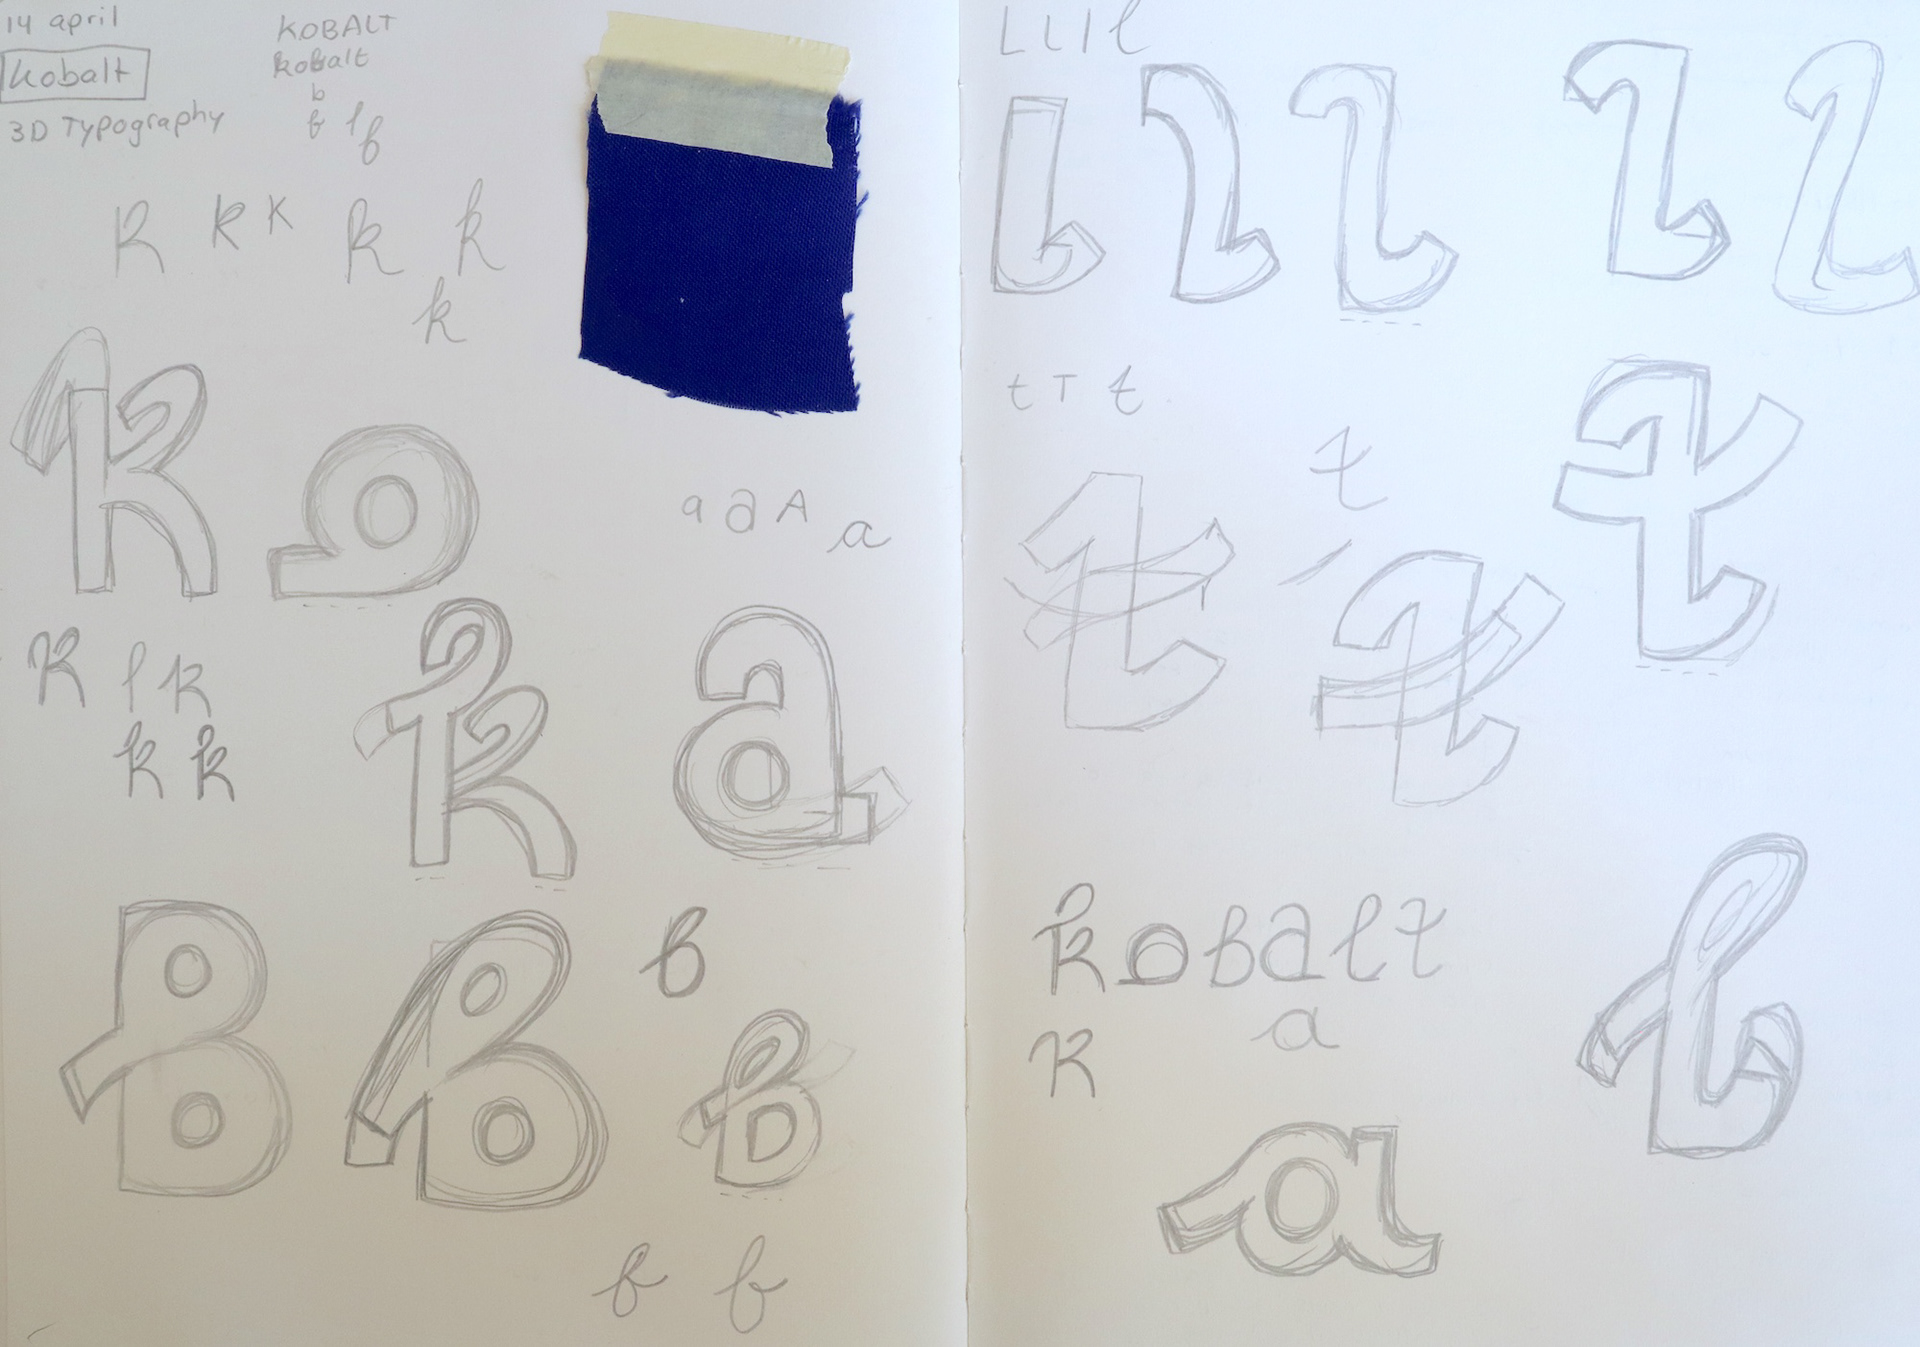 14 april
kobalt
3D Typography
KOBALT
kobalt
b
b l
b
k k K k k
k
k
o
k l k
k k
k
a a A a
a
B B b
b
b b
L L l l
l l l l l
t T t
t
t t t
kobalt
k
a
l
a